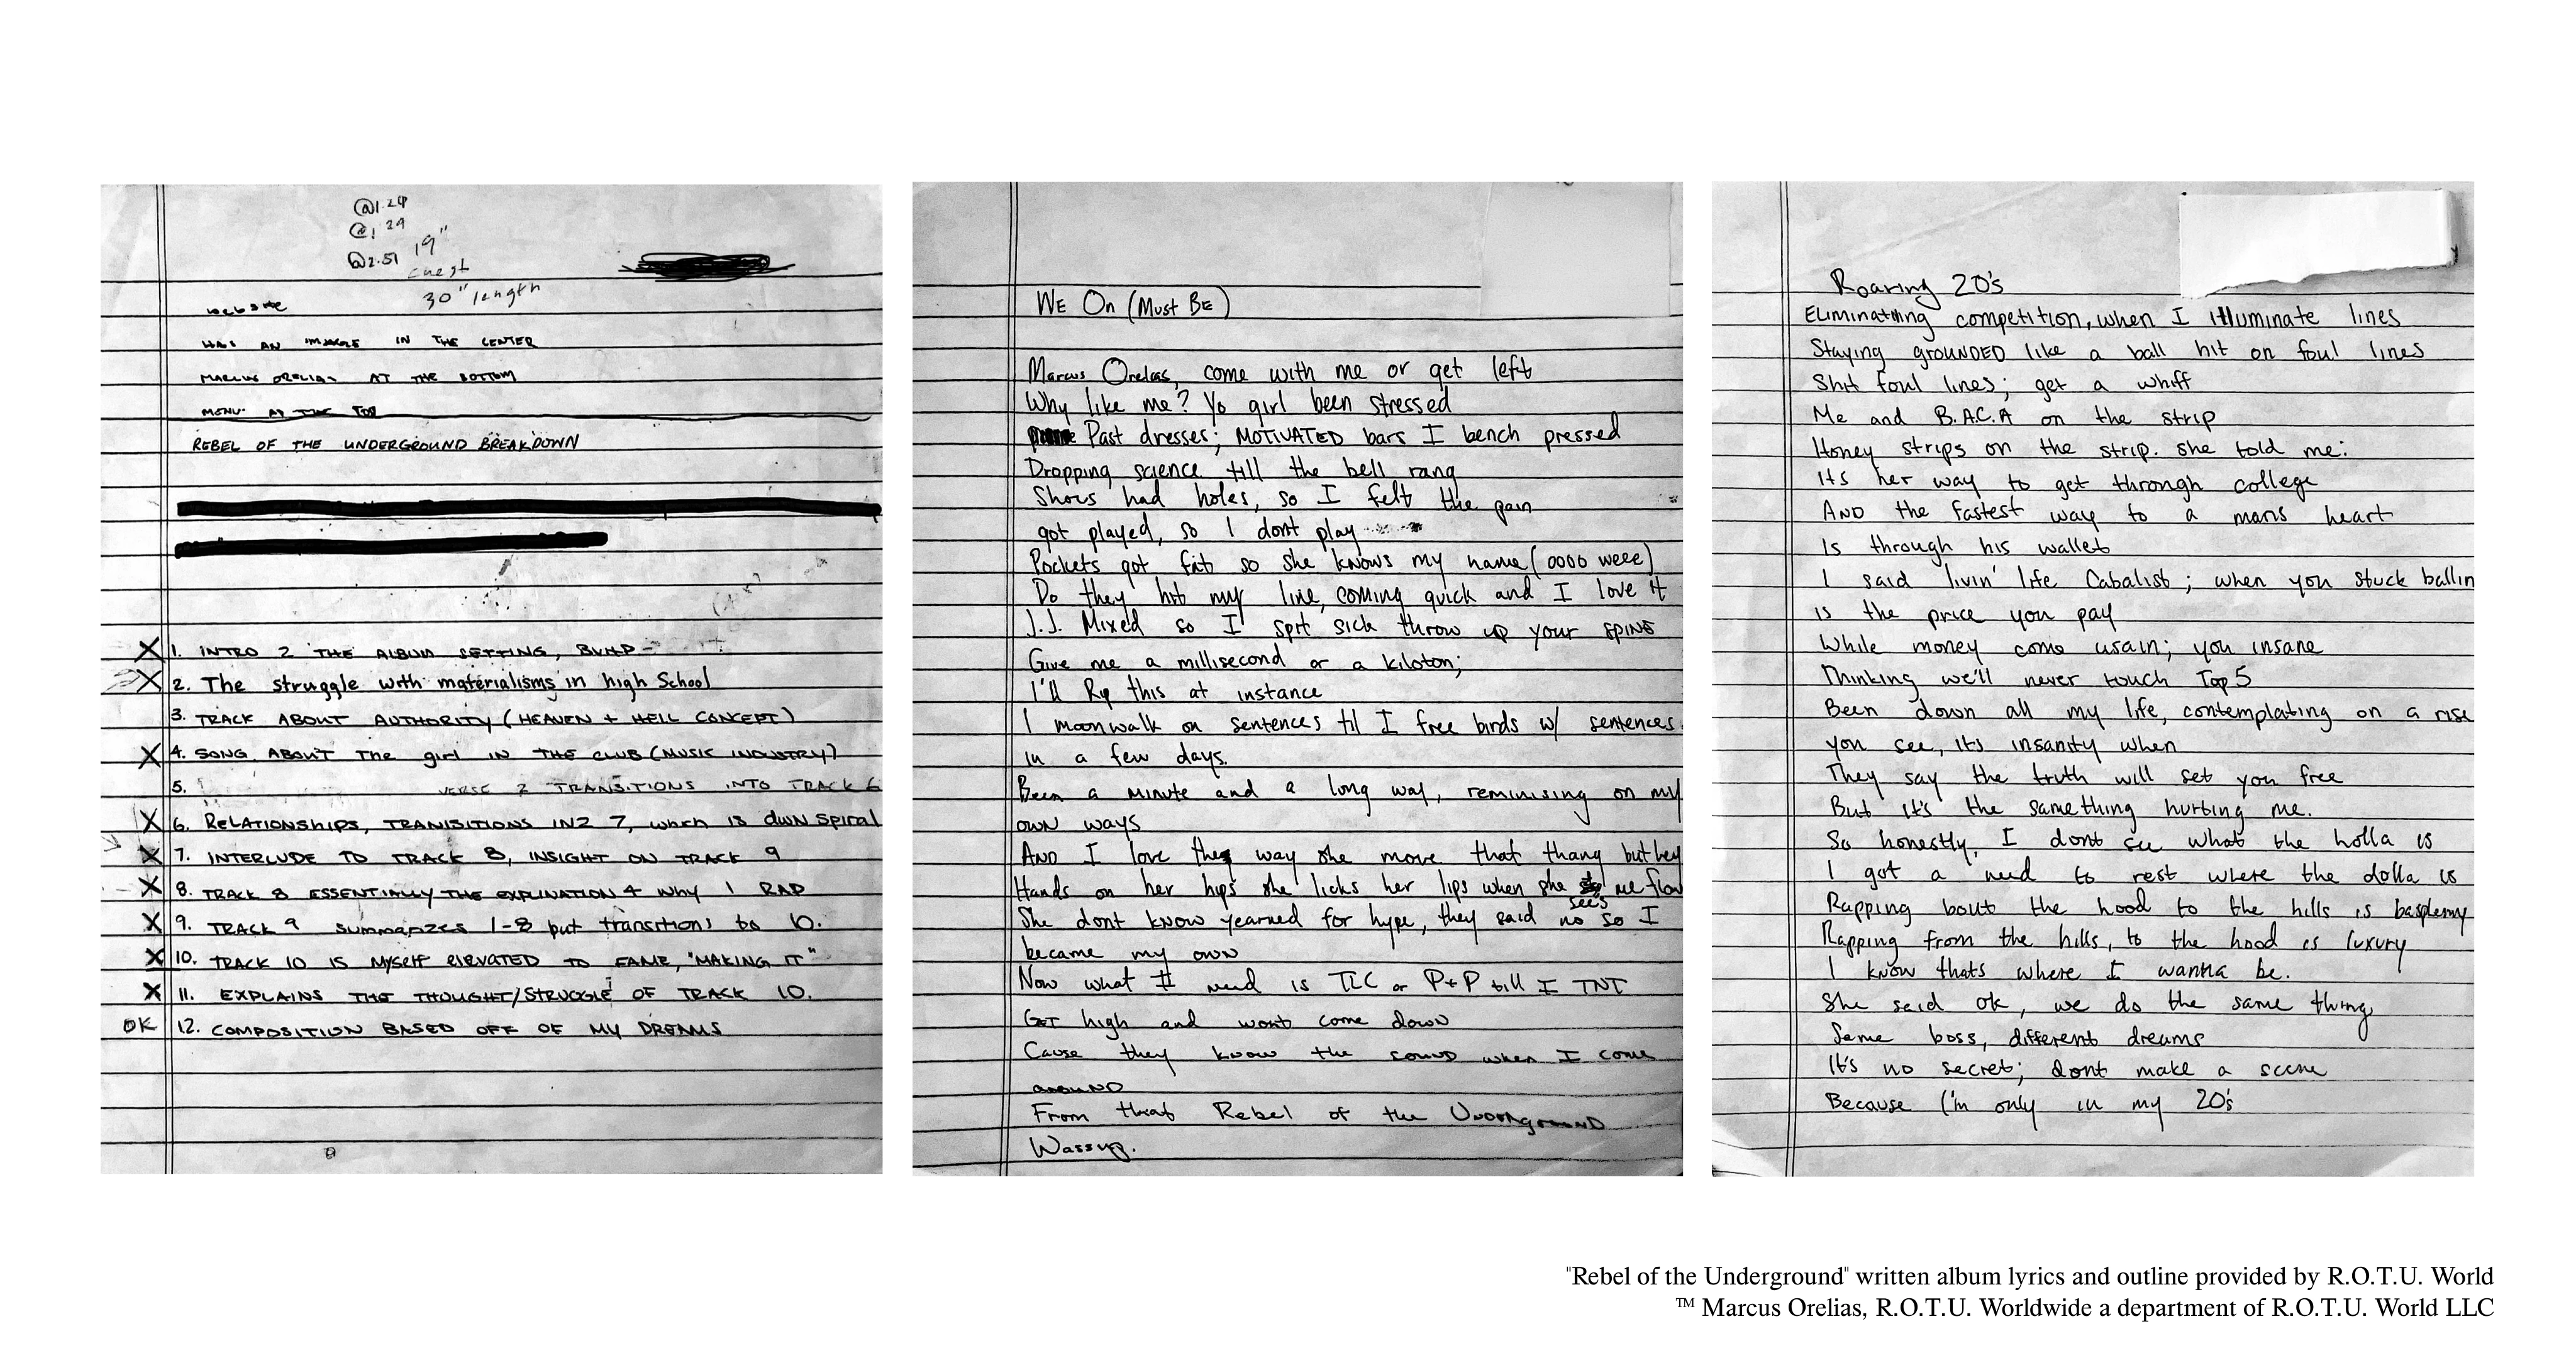 @1.24
@1.29
@2.51 19"
chest
30" length
website
HAS AN IMAGE IN THE CENTER
MARCUS ORELIAS AT THE BOTTOM
MENU AT THE TOP
REBEL OF THE UNDERGROUND BREAKDOWN
X 1. INTRO 2 THE ALBUM SETTING, BUMP
X 2. The struggle with materialisms in high School
3. TRACK ABOUT AUTHORITY (HEAVEN + HELL CONCEPT)
X 4. SONG ABOUT The girl IN THE CLUB (MUSIC INDUSTRY)
5. VERSE 2 TRANSITIONS INTO TRACK 6
X 6. RELATIONSHIPS, TRANSITIONS IN2 7, which IS dwn spiral
X 7. INTERLUDE TO TRACK 8, INSIGHT ON TRACK 9
X 8. TRACK 8 ESSENTIALLY THE EXPLINATION 4 Why I RAP
X 9. TRACK 9 summarizes 1-8 but transitions to 10.
X 10. TRACK 10 IS MYSELF ELEVATED TO FAME, "MAKING IT"
X 11. EXPLAINS THE THOUGHT/STRUGGLE OF TRACK 10.
OK 12. COMPOSITION BASED OFF OF MY DREAMS
WE On (Must BE)
Marcus Orelias, come with me or get left
Why like me? Yo girl been stressed
Past dresses; MOTIVATED bars I bench pressed
Dropping science till the bell rang
Shoes had holes, so I felt the pain
got played, so I dont play
Pockets got fat so she knows my name (oooo weee)
Do they hit my line, coming quick and I love it
J.J. Mixed so I spit sick throw up your SPINE
Give me a millisecond or a kiloton;
I'll Rip this at instance
I moonwalk on sentences til I free birds w/ sentences
in a few days.
Been a minute and a long way, reminising on my
own ways
AND I love the way she move that thang but hey
Hands on her hips she licks her lips when she sees me flow
She dont know yearned for hype, they said no so I
became my own
Now what I need is TLC or P+P till I TNT
GET high and wont come down
Cause they know the sound when I come
around
From that Rebel of the Underground
Wassup.
Roaring 20's
Eliminating competition, when I illuminate lines
Staying grOUNDED like a ball hit on foul lines
Shit foul lines; get a whiff
Me and B.A.C.A on the strip
Honey strips on the strip. she told me:
its her way to get through college
AND the fastest way to a mans heart
Is through his wallet
I said livin' life Cabalist; when you stuck ballin
is the price you pay
While money come usain; you insane
Thinking we'll never touch Top 5
Been down all my life, contemplating on a rise
you see, its insanity when
They say the truth will set you free
But it's the same thing hurting me.
So honestly, I dont see what the holla is
I got a need to rest where the dolla is
Rapping bout the hood to the hills is basplemy
Rapping from the hills, to the hood is luxury
I know thats where I wanna be.
She said ok, we do the same thing
Same boss, different dreams
It's no secret; dont make a scene
Because I'm only in my 20's
"Rebel of the Underground" written album lyrics and outline provided by R.O.T.U. World
™ Marcus Orelias, R.O.T.U. Worldwide a department of R.O.T.U. World LLC